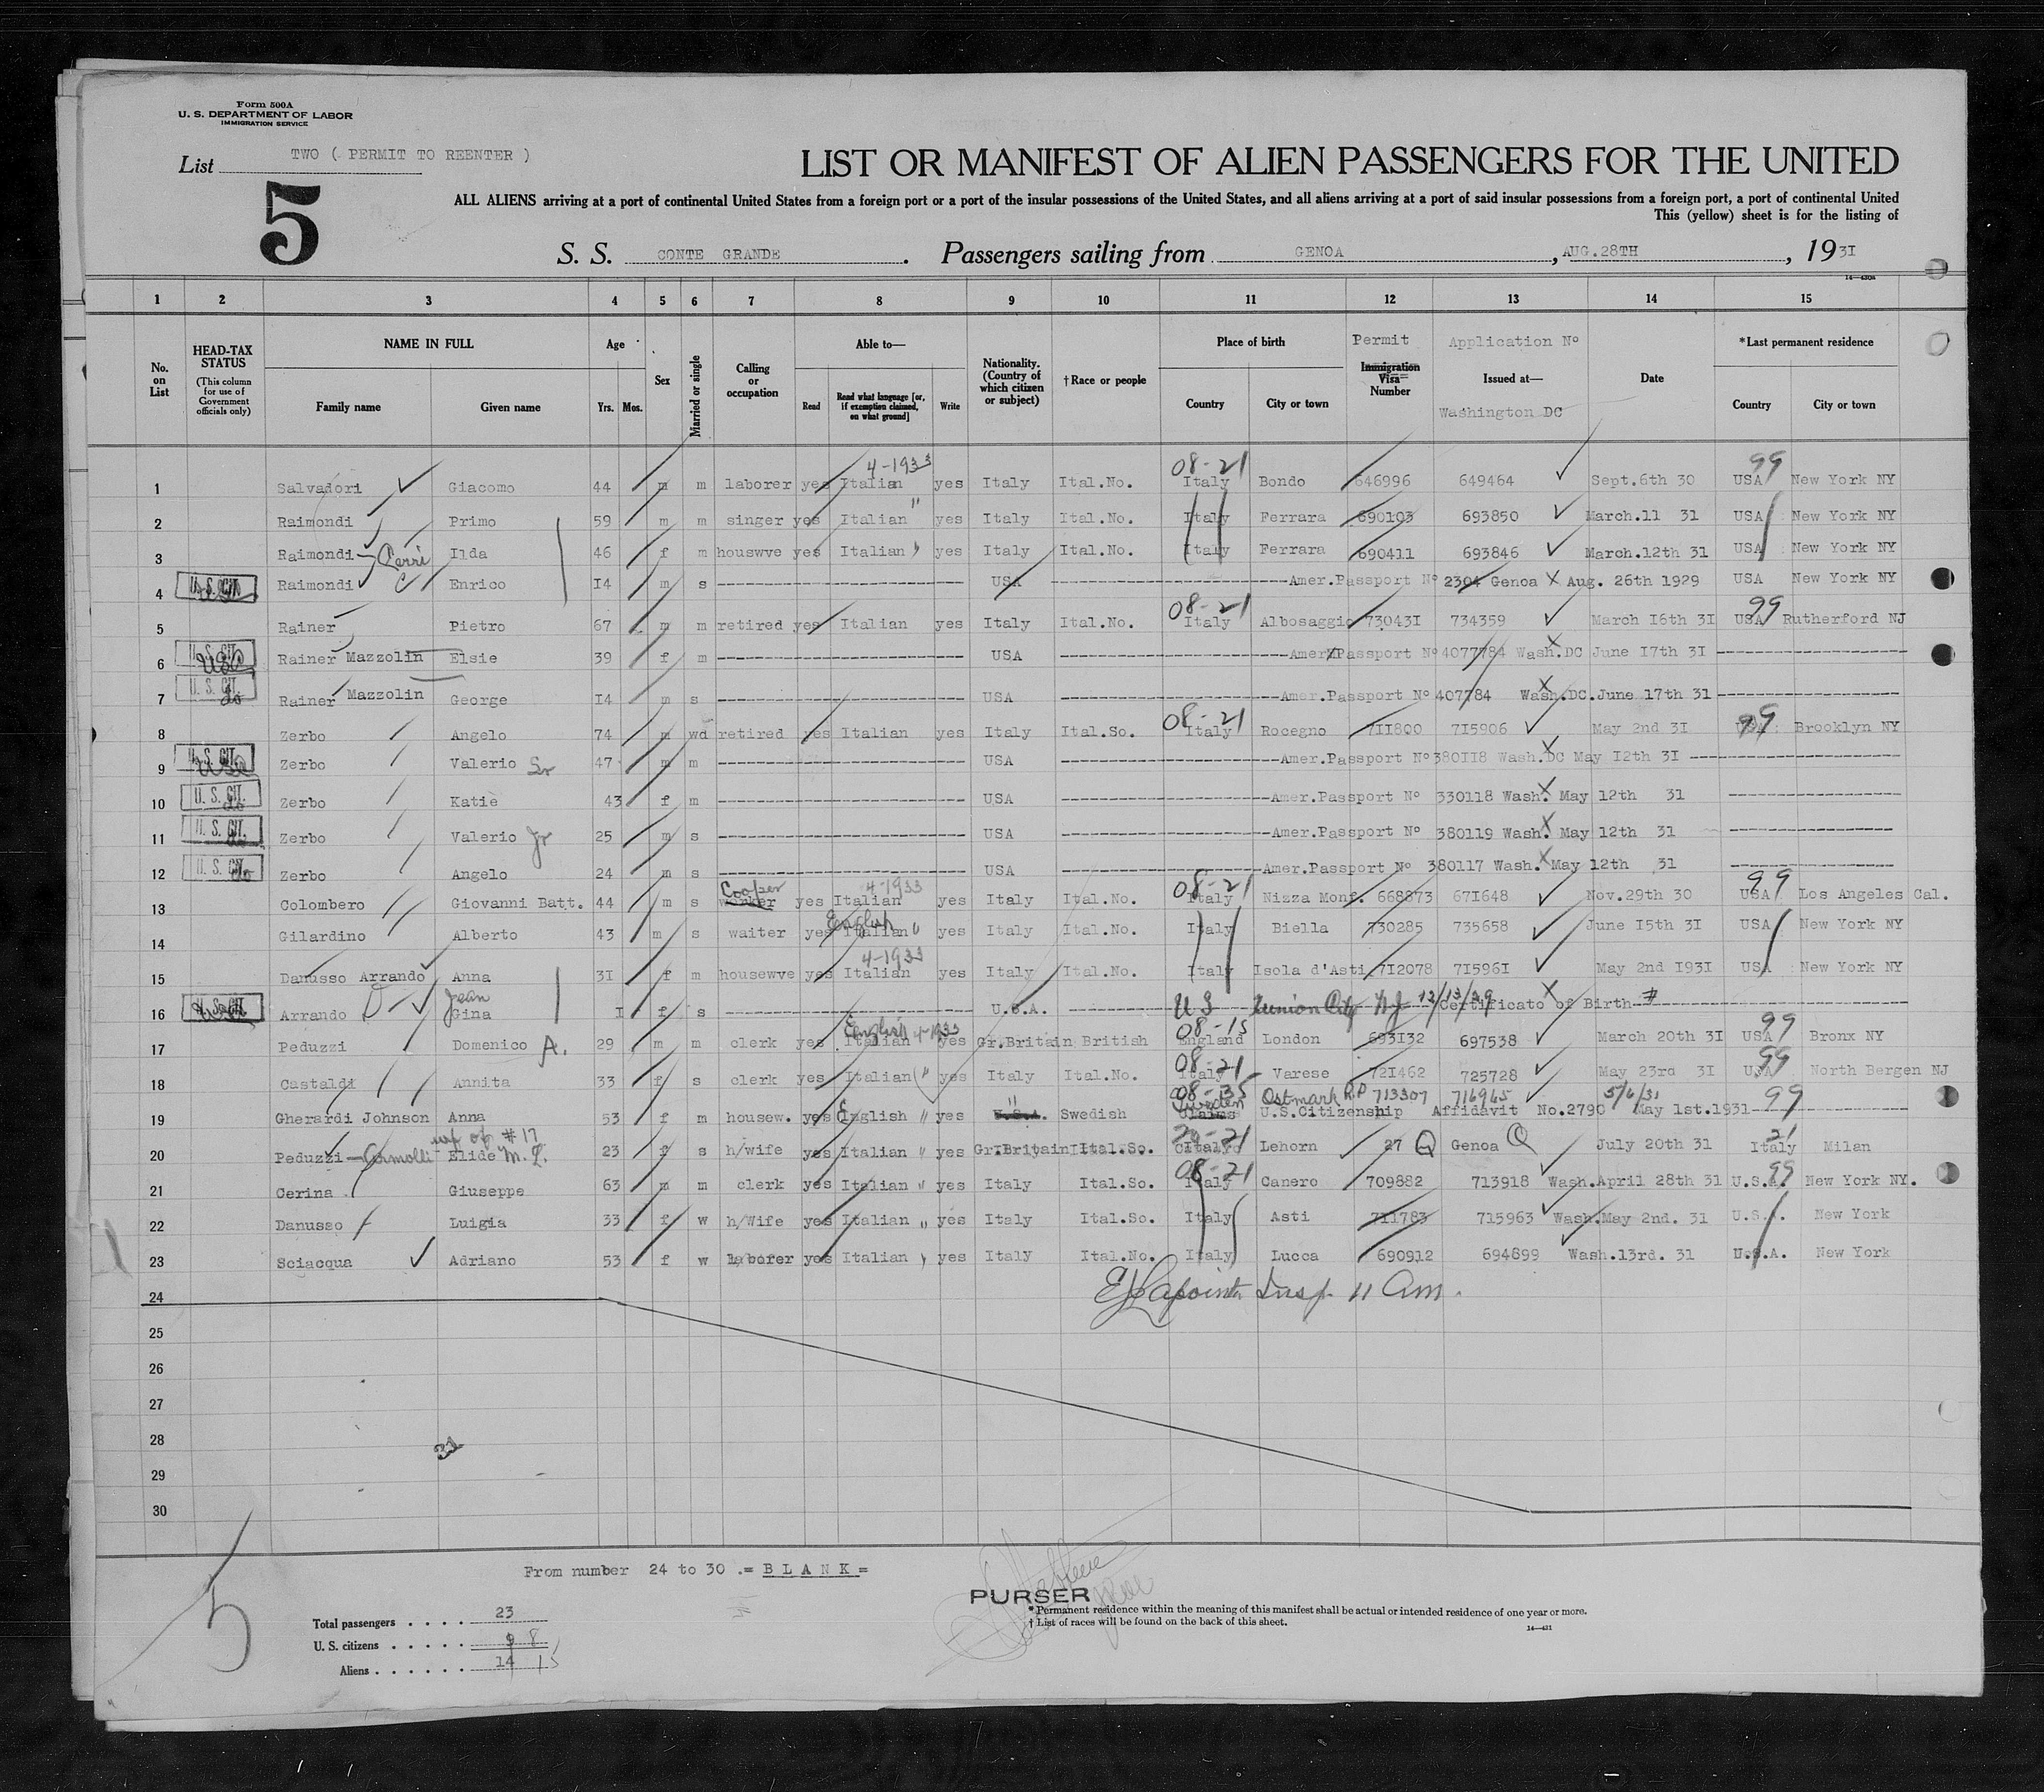 Form 500A
U. S. DEPARTMENT OF LABOR
IMMIGRATION SERVICE
List TWO ( PERMIT TO REENTER )
5
LIST OR MANIFEST OF ALIEN PASSENGERS FOR THE UNITED
ALL ALIENS arriving at a port of continental United States from a foreign port or a port of the insular possessions of the United States, and all aliens arriving at a port of said insular possessions from a foreign port, a port of continental United
This (yellow) sheet is for the listing of
S. S. CONTE GRANDE. Passengers sailing from GENOA, AUG.28TH, 1931
14—430a
1 2 3 4 5 6 7 8 9 10 11 12 13 14 15
No. on List
HEAD-TAX STATUS (This column for use of Government officials only)
NAME IN FULL Family name Given name
Age Yrs. Mos.
Sex
Married or single
Calling or occupation
Able to— Read Read what language [or, if exemption claimed, on what ground] Write
Nationality. (Country of which citizen or subject)
†Race or people
Place of birth Country City or town
Permit Immigration Visa Number
Application No Issued at— Washington DC
Date
*Last permanent residence Country City or town
4-1933 08-21 99
1 Salvadori Giacomo 44 m m laborer yes Italian yes Italy Ital.No. Italy Bondo 646996 649464 Sept.6th 30 USA New York NY
2 Raimondi Primo 59 m m singer yes Italian " yes Italy Ital.No. Italy Ferrara 690103 693850 March.11 31 USA New York NY
3 Raimondi- Ilda 46 f m houswve yes Italian " yes Italy Ital.No. Italy Ferrara 690411 693846 March.12th 31 USA New York NY
4 U. S. CIT. Raimondi Enrico I4 m s USA Amer.Passport No 2304 Genoa X Aug. 26th 1929 USA New York NY
08-21 99
5 Rainer Pietro 67 m m retired yes Italian yes Italy Ital.No. Italy Albosaggio 73043I 734359 March I6th 3I USA Rutherford NJ
6 U. S. CIT. USC Rainer Mazzolin Elsie 39 f m USA Amer.Passport No 4077784 Wash.DC June I7th 3I
7 U. S. CIT. do Rainer Mazzolin George I4 m s USA Amer.Passport No 407784 Wash.DC.June 17th 31
08-21 99
8 Zerbo Angelo 74 m wd retired yes Italian yes Italy Ital.So. Italy Rocegno 7II800 7I5906 May 2nd 3I Brooklyn NY
9 U. S. CIT. USC Zerbo Valerio Sr 47 m m USA Amer.Passport No 380II8 Wash.DC May I2th 3I
10 U. S. CIT. do Zerbo Katie 43 f m USA Amer.Passport No 330118 Wash. May 12th 31
11 U. S. CIT. Zerbo Valerio Jr 25 m s USA Amer.Passport No 380119 Wash. May 12th 31
12 U. S. CIT. do Zerbo Angelo 24 m s USA Amer.Passport No 380117 Wash. May 12th 31
Cooper 4-1933 08-21 99
13 Colombero Giovanni Batt. 44 m s worker yes Italian yes Italy Ital.No. Italy Nizza Monf. 668873 67I648 Nov.29th 30 USA Los Angeles Cal.
English
14 Gilardino Alberto 43 m s waiter yes Italian " yes Italy Ital.No. Italy Biella 730285 735658 June I5th 3I USA New York NY
4-1933
15 Danusso Arrando Anna 3I f m housewve yes Italian yes Italy Ital.No. Italy Isola d'Asti 7I2078 7I596I May 2nd I93I USA New York NY
Jean
16 U. S. CIT. Arrando Gina I f s U.S.A. US Union City NJ 12/13/29 Certificato of Birth #
English 4-1933 08-15 99
17 Peduzzi Domenico A. 29 m m clerk yes Italian yes Gr.Britain British England London 693I32 697538 March 20th 3I USA Bronx NY
08-21 99
18 Castaldi Annita 33 f s clerk yes Italian " yes Italy Ital.No. Italy Varese 72I462 725728 May 23rd 3I USA North Bergen NJ
08-35 Sweden Ostmark R.P 713307 716965 5/6/31 99
19 Gherardi Johnson Anna 53 f m housew. yes English " yes U.S.A. Swedish Claims U.S.Citizenship Affidavit No.2790 May 1st.1931
wf of #17
20 Peduzzi- Elide M. L. 23 f s h/wife yes Italian " yes Gr.Britain Ital.So. Italy Lehorn 27 Q Genoa Q July 20th 31 21 Italy Milan
08-21 99
21 Cerina Giuseppe 63 m m clerk yes Italian " yes Italy Ital.So. Italy Canero 709882 713918 Wash.April 28th 31 U.S.A. New York NY.
22 Danusso Luigia 33 f w h/Wife yes Italian " yes Italy Ital.So. Italy Asti 711783 715963 Wash.May 2nd. 31 U.S.A. New York
23 Sciacqua Adriano 53 f w laborer yes Italian " yes Italy Ital.No. Italy Lucca 690912 694899 Wash.13rd. 31 U.S.A. New York
Lapointe Insp. 11 Am.
24
25
26
27
28
29
30
From number 24 to 30 .= B L A N K =
PURSER
Total passengers . . . . 23
U. S. citizens . . . . . 9 8
Aliens . . . . . . . 14 15
* Permanent residence within the meaning of this manifest shall be actual or intended residence of one year or more.
† List of races will be found on the back of this sheet.
14—431
5